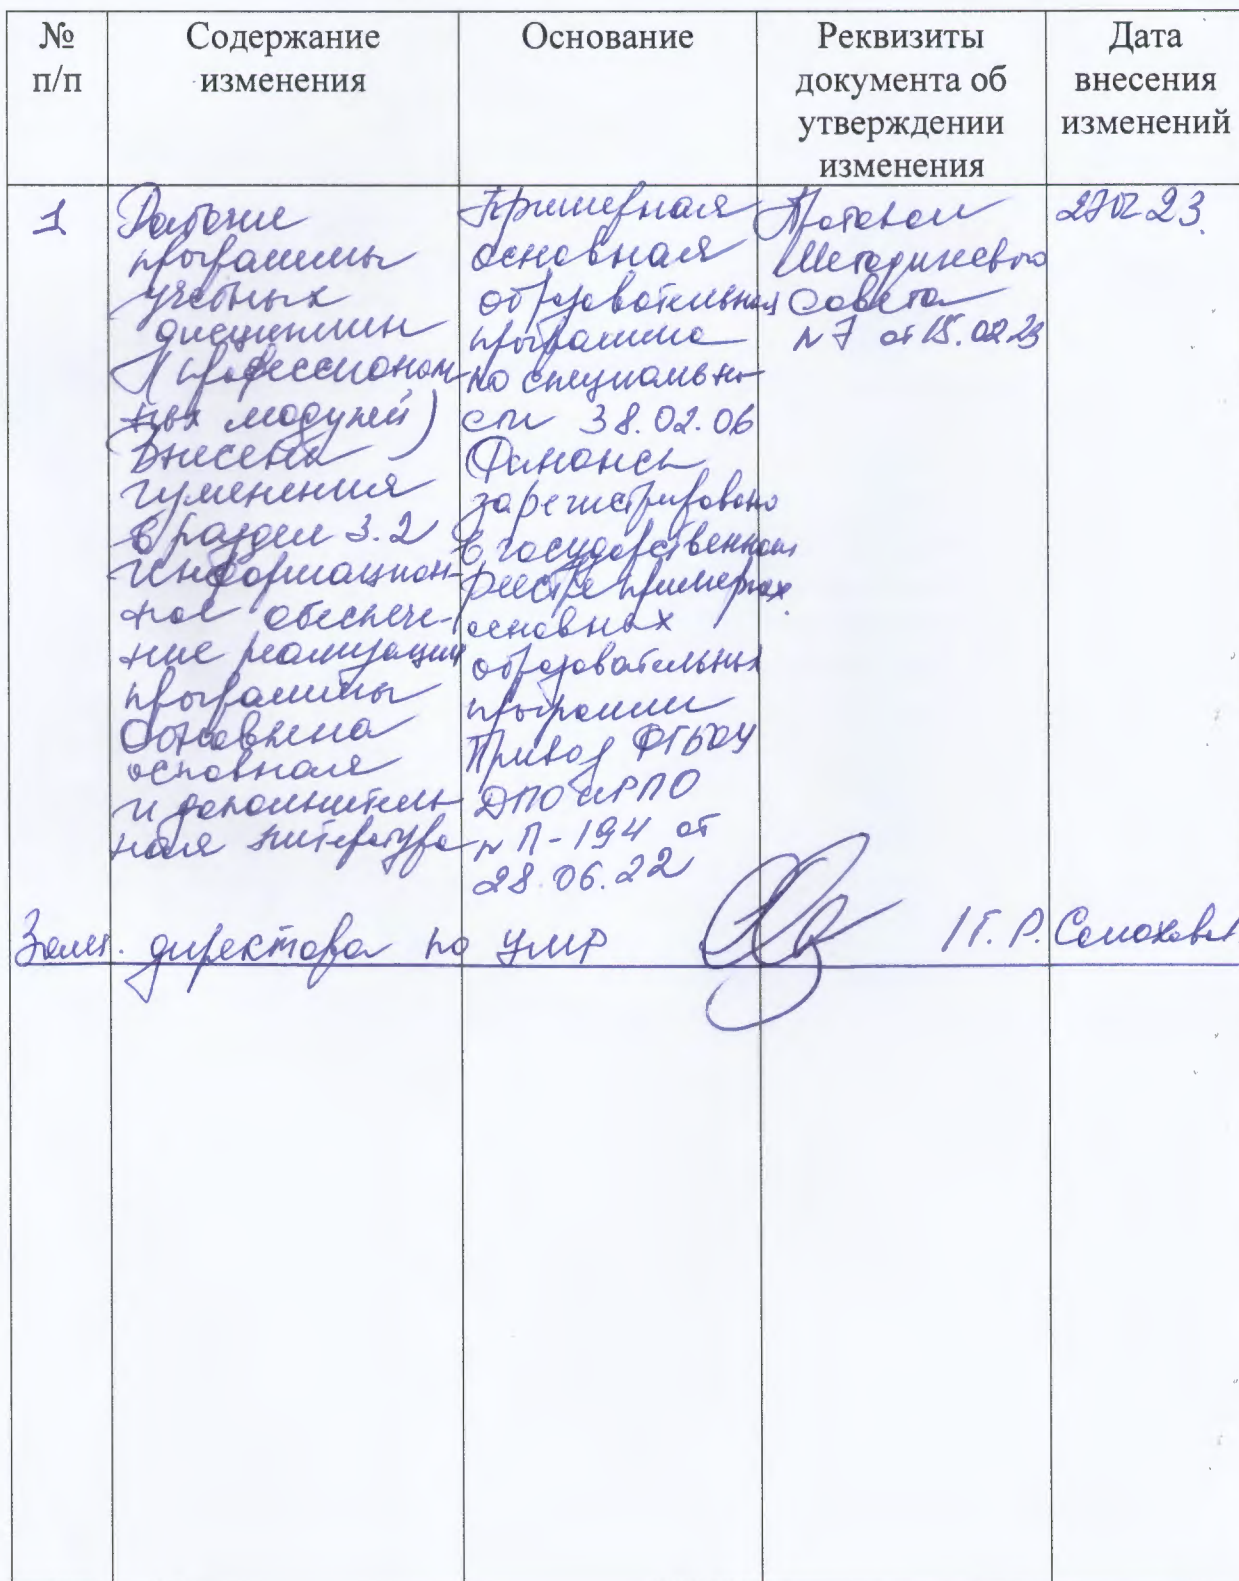 №
п/п
Содержание
изменения
Основание
Реквизиты
документа об
утверждении
изменения
Дата
внесения
изменений
1
Рабочие
программы
учебных
дисциплин
(профессиональ-
ных модулей)
Внесены
изменения
в раздел 3.2
Информацион-
ное обеспече-
ние реализации
программы
Обновлена
основная
и дополнитель-
ная литература
Примерная
основная
образовательная
программа
по специально-
сти 38.02.06
Финансы
зарегистрировано
в государственном
реестре примерных
основных
образовательных
программ
Приказ ФГБОУ
ДПО ИРПО
№ П-194 от
28.06.22
Протокол
Методического
Совета
№7 от 15.02.23
27.02.23.
Замест. директора по УМР